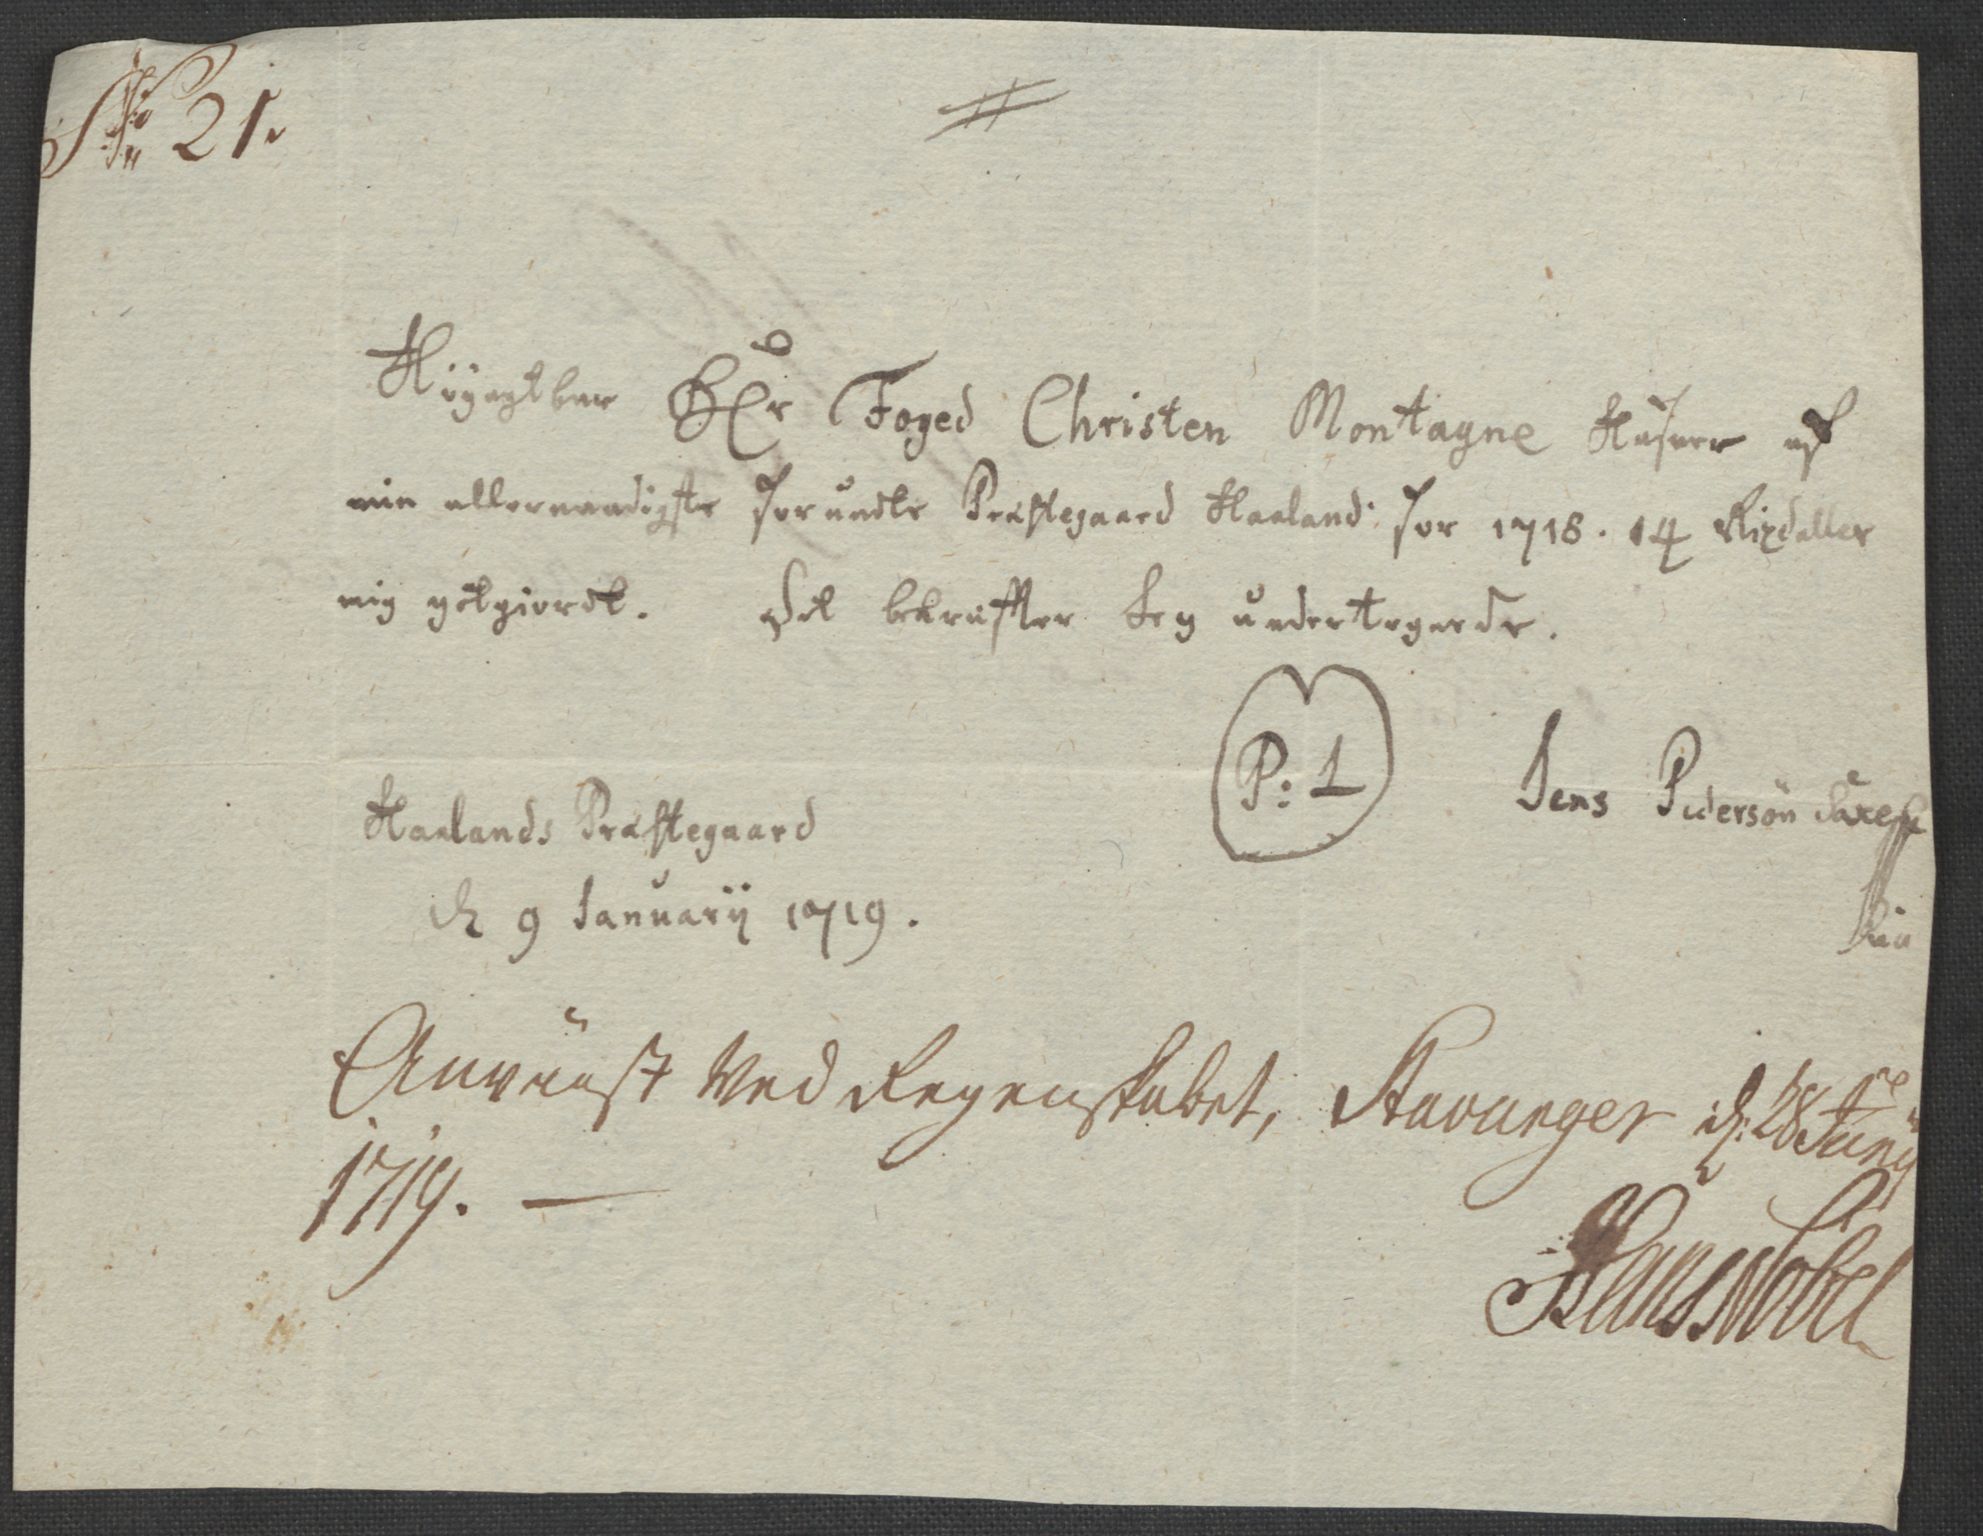 No 21.
Höyagtbar Hr Foged Christen Montagne Hafuer af
min allernaadigste forundte Præstegaard Haaland for 1718. 14 Rixdaller
mig gotgiordt. Det bekræfter Jeg undertegnede.
P: 1
Jens Pedersön
Haalands Præstegaard
d 9 Januarij 1719.
Anviist ved Regenskabet, Stavanger d: 28 Junij
1719.
Hans Nobel